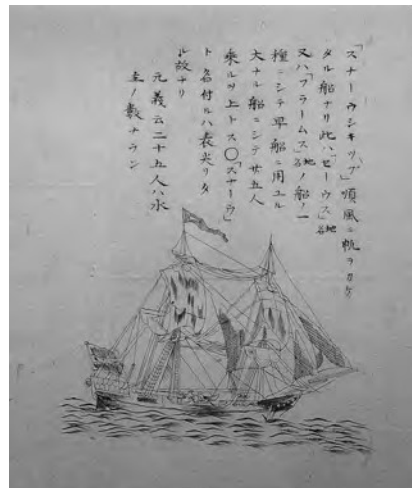 「スナーウシキップ」順風ニ帆ヲカケ
タル船ナリ此ハ「セーウス」地名
又ハ「フラームス」地名ノ船ノ一
種ニシテ早船ニ用ユル
大ナル船ニシテ廿五人
乗ルヲ上トス〇「スナーウ」
ト名付ルハ表尖リタ
ル故ナリ
元義云二十五人ハ水
主ノ数ナラン